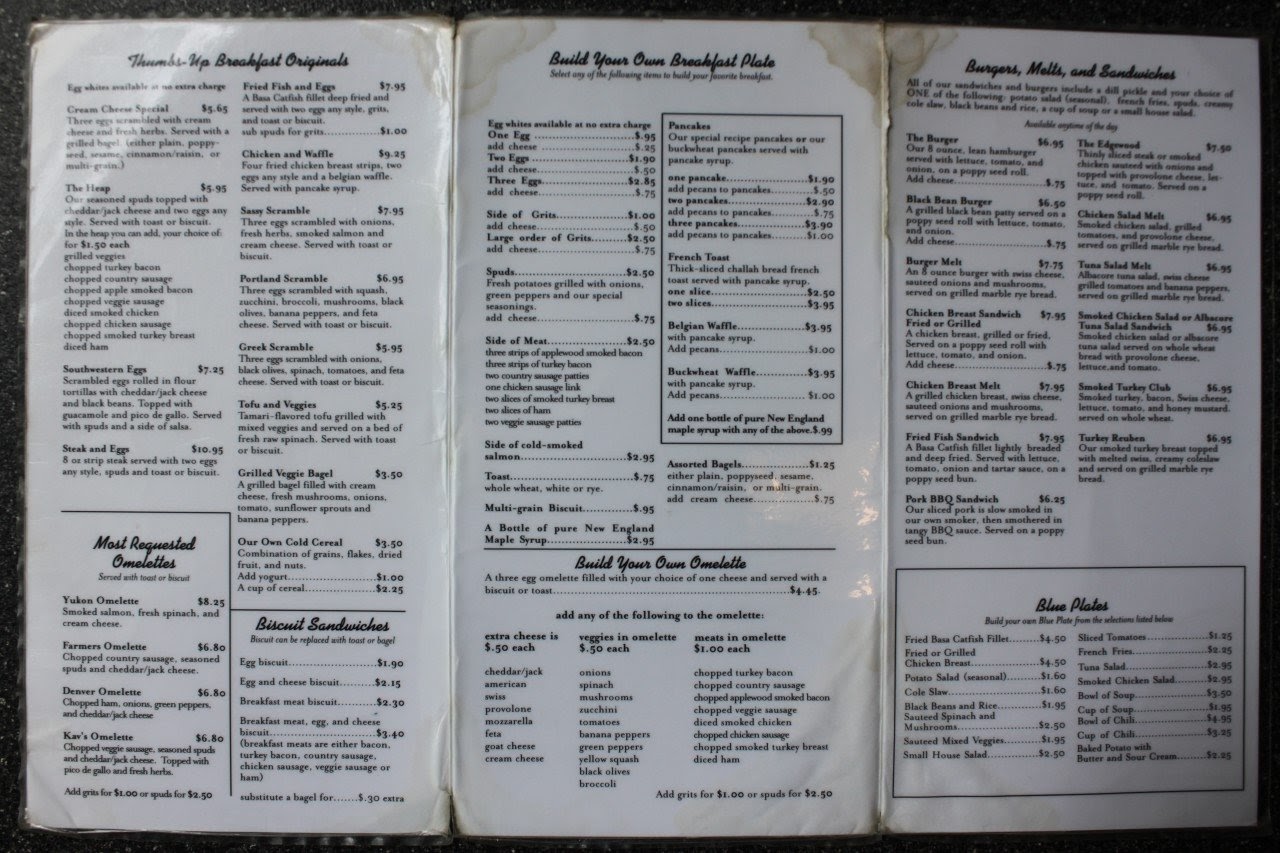 Thumbs-Up Breakfast Originals
Egg whites available at no extra charge
Cream Cheese Special $5.65
Three eggs scrambled with cream
cheese and fresh herbs. Served with a
grilled bagel. (either plain, poppy-
seed, sesame, cinnamon/raisin, or
multi-grain.)
The Heap $5.95
Our seasoned spuds topped with
cheddar/jack cheese and two eggs any
style. Served with toast or biscuit.
In the heap you can add, your choice of:
for $1.50 each
grilled veggies
chopped turkey bacon
chopped country sausage
chopped apple smoked bacon
chopped veggie sausage
diced smoked chicken
chopped chicken sausage
chopped smoked turkey breast
diced ham
Southwestern Eggs $7.25
Scrambled eggs rolled in flour
tortillas with cheddar/jack cheese
and black beans. Topped with
guacamole and pico de gallo. Served
with spuds and a side of salsa.
Steak and Eggs $10.95
8 oz strip steak served with two eggs
any style, spuds and toast or biscuit.
Most Requested
Omelettes
Served with toast or biscuit
Yukon Omelette $8.25
Smoked salmon, fresh spinach, and
cream cheese.
Farmers Omelette $6.80
Chopped country sausage, seasoned
spuds and cheddar/jack cheese.
Denver Omelette $6.80
Chopped ham, onions, green peppers,
and cheddar/jack cheese
Kav's Omelette $6.80
Chopped veggie sausage, seasoned spuds
and cheddar/jack cheese. Topped with
pico de gallo and fresh herbs.
Add grits for $1.00 or spuds for $2.50
Fried Fish and Eggs $7.95
A Basa Catfish fillet deep fried and
served with two eggs any style, grits,
and toast or biscuit.
sub spuds for grits..............$1.00
Chicken and Waffle $9.25
Four fried chicken breast strips, two
eggs any style and a belgian waffle.
Served with pancake syrup.
Sassy Scramble $7.95
Three eggs scrambled with onions,
fresh herbs, smoked salmon and
cream cheese. Served with toast or
biscuit.
Portland Scramble $6.95
Three eggs scrambled with squash,
zucchini, broccoli, mushrooms, black
olives, banana peppers, and feta
cheese. Served with toast or biscuit.
Greek Scramble $5.95
Three eggs scrambled with onions,
black olives, spinach, tomatoes, and feta
cheese. Served with toast or biscuit.
Tofu and Veggies $5.25
Tamari-flavored tofu grilled with
mixed veggies and served on a bed of
fresh raw spinach. Served with toast
or biscuit.
Grilled Veggie Bagel $3.50
A grilled bagel filled with cream
cheese, fresh mushrooms, onions,
tomato, sunflower sprouts and
banana peppers.
Our Own Cold Cereal $3.50
Combination of grains, flakes, dried
fruit, and nuts.
Add yogurt.......................$1.00
A cup of cereal..................$2.25
Biscuit Sandwiches
Biscuit can be replaced with toast or bagel
Egg biscuit......................$1.90
Egg and cheese biscuit.........$2.15
Breakfast meat biscuit.........$2.30
Breakfast meat, egg, and cheese
biscuit............................$3.40
(breakfast meats are either bacon,
turkey bacon, country sausage,
chicken sausage, veggie sausage or
ham)
substitute a bagel for.......$.30 extra
Build Your Own Breakfast Plate
Select any of the following items to build your favorite breakfast.
Egg whites available at no extra charge
One Egg .........................$.95
add cheese ......................$.25
Two Eggs........................$1.90
add cheese.......................$.50
Three Eggs......................$2.85
add cheese.......................$.75
Side of Grits....................$1.00
add cheese.......................$.50
Large order of Grits...........$2.50
add cheese.......................$.75
Spuds............................$2.50
Fresh potatoes grilled with onions,
green peppers and our special
seasonings.
add cheese.......................$.75
Side of Meat....................$2.50
three strips of applewood smoked bacon
three strips of turkey bacon
two country sausage patties
one chicken sausage link
two slices of smoked turkey breast
two slices of ham
two veggie sausage patties
Side of cold-smoked
salmon...........................$2.95
Toast.............................$.75
whole wheat, white or rye.
Multi-grain Biscuit.............$.95
A Bottle of pure New England
Maple Syrup....................$2.95
Pancakes
Our special recipe pancakes or our
buckwheat pancakes served with
pancake syrup.
one pancake.....................$1.90
add pecans to pancakes..........$.50
two pancakes....................$2.90
add pecans to pancakes..........$.75
three pancakes..................$3.90
add pecans to pancakes.........$1.00
French Toast
Thick-sliced challah bread french
toast served with pancake syrup.
one slice.........................$2.50
two slices.......................$3.95
Belgian Waffle..................$3.95
with pancake syrup.
Add pecans......................$1.00
Buckwheat Waffle..............$3.95
with pancake syrup.
Add pecans......................$1.00
Add one bottle of pure New England
maple syrup with any of the above.$.99
Assorted Bagels.................$1.25
either plain, poppyseed, sesame,
cinnamon/raisin, or multi-grain.
add cream cheese................$.75
Build Your Own Omelette
A three egg omelette filled with your choice of one cheese and served with a
biscuit or toast.......................................................$4.45.
add any of the following to the omelette:
extra cheese is
$.50 each
cheddar/jack
american
swiss
provolone
mozzarella
feta
goat cheese
cream cheese
veggies in omelette
$.50 each
onions
spinach
mushrooms
zucchini
tomatoes
banana peppers
green peppers
yellow squash
black olives
broccoli
meats in omelette
$1.00 each
chopped turkey bacon
chopped country sausage
chopped applewood smoked bacon
chopped veggie sausage
diced smoked chicken
chopped chicken sausage
chopped smoked turkey breast
diced ham
Add grits for $1.00 or spuds for $2.50
Burgers, Melts, and Sandwiches
All of our sandwiches and burgers include a dill pickle and your choice of
ONE of the following: potato salad (seasonal), french fries, spuds, creamy
cole slaw, black beans and rice, a cup of soup or a small house salad.
Available anytime of the day
The Burger $6.95
Our 8 ounce, lean hamburger
served with lettuce, tomato, and
onion, on a poppy seed roll.
Add cheese.......................$.75
Black Bean Burger $6.50
A grilled black bean patty served on a
poppy seed roll with lettuce, tomato,
and onion.
Add cheese.......................$.75
Burger Melt $7.75
An 8 ounce burger with swiss cheese,
sauteed onions and mushrooms,
served on grilled marble rye bread.
Chicken Breast Sandwich $7.95
Fried or Grilled
A chicken breast, grilled or fried,
Served on a poppy seed roll with
lettuce, tomato, and onion.
Add cheese.......................$.75
Chicken Breast Melt $7.95
A grilled chicken breast, swiss cheese,
sauteed onions and mushrooms,
served on grilled marble rye bread.
Fried Fish Sandwich $7.95
A Basa Catfish fillet lightly breaded
and deep fried. Served with lettuce,
tomato, onion and tartar sauce, on a
poppy seed bun.
Pork BBQ Sandwich $6.25
Our sliced pork is slow smoked in
our own smoker, then smothered in
tangy BBQ sauce. Served on a poppy
seed bun.
The Edgewood $7.50
Thinly sliced steak or smoked
chicken sauteed with onions and
topped with provolone cheese, let-
tuce, and tomato. Served on a
poppy seed roll.
Chicken Salad Melt $6.95
Smoked chicken salad, grilled
tomatoes, and provolone cheese,
served on grilled marble rye bread.
Tuna Salad Melt $6.95
Albacore tuna salad, swiss cheese
grilled tomatoes and banana peppers,
served on grilled marble rye bread.
Smoked Chicken Salad or Albacore
Tuna Salad Sandwich $6.95
Smoked chicken salad or albacore
tuna salad served on whole wheat
bread with provolone cheese,
lettuce,and tomato.
Smoked Turkey Club $6.95
Smoked turkey, bacon, Swiss cheese,
lettuce, tomato, and honey mustard,
served on whole wheat.
Turkey Reuben $6.95
Our smoked turkey breast topped
with melted swiss, creamy coleslaw
and served on grilled marble rye
bread.
Blue Plates
Build your own Blue Plate from the selections listed below
Fried Basa Catfish Fillet.......$4.50
Fried or Grilled
Chicken Breast..................$4.50
Potato Salad (seasonal).......$1.60
Cole Slaw.......................$1.60
Black Beans and Rice..........$1.95
Sauteed Spinach and
Mushrooms.....................$2.50
Sauteed Mixed Veggies.......$1.95
Small House Salad.............$2.50
Sliced Tomatoes...............$1.25
French Fries....................$2.25
Tuna Salad.....................$2.95
Smoked Chicken Salad.......$2.95
Bowl of Soup...................$3.50
Cup of Soup....................$1.95
Bowl of Chili...................$4.95
Cup of Chili....................$3.25
Baked Potato with
Butter and Sour Cream......$2.25